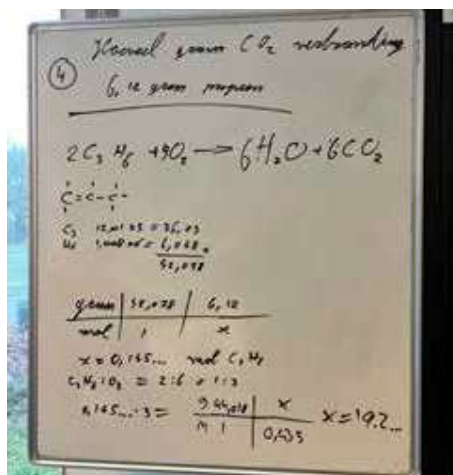 Hoeveel gram CO₂ verbranding
4
6,12 gram propeen
2C₃H₆ + 9O₂ → 6H₂O + 6CO₂
C=C-C-
C₃ 12,01·3 = 36,03
H₆ 1,008·6 = 6,048 +
42,078
gram | 42,078 | 6,12
mol | 1 | x
x = 0,145... mol C₃H₆
= 2:6 = 1:3
0,145...·3 =
g 44,01 | x
m 1 | 0,435
x = 19,2...